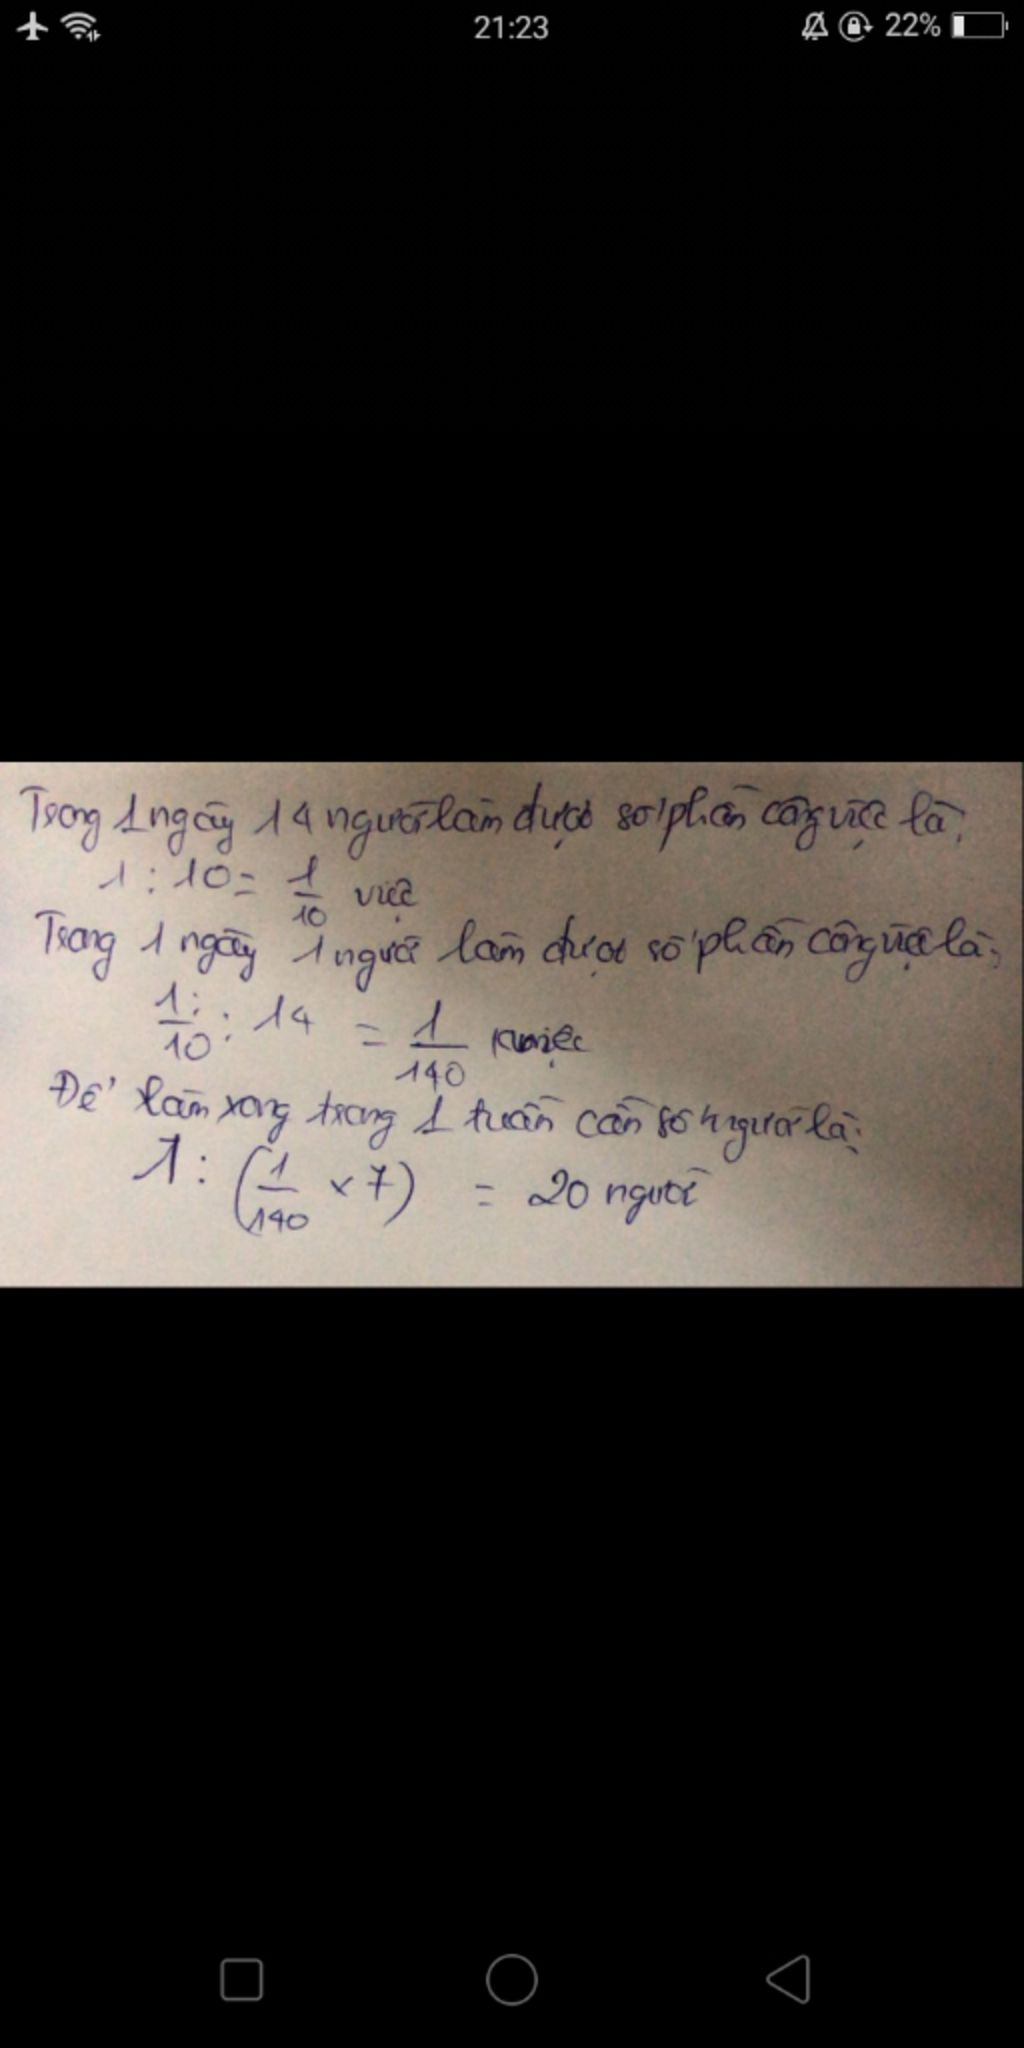 21:23
22%
Trong 1 ngày 14 người làm được số phần công việc là:
1 : 10 = 1/10 việc
Trong 1 ngày 1 người làm được số phần công việc là:
1/10 : 14 = 1/140 việc
Để làm xong trong 1 tuần cần số người là:
1 : (1/140 x 7) = 20 người